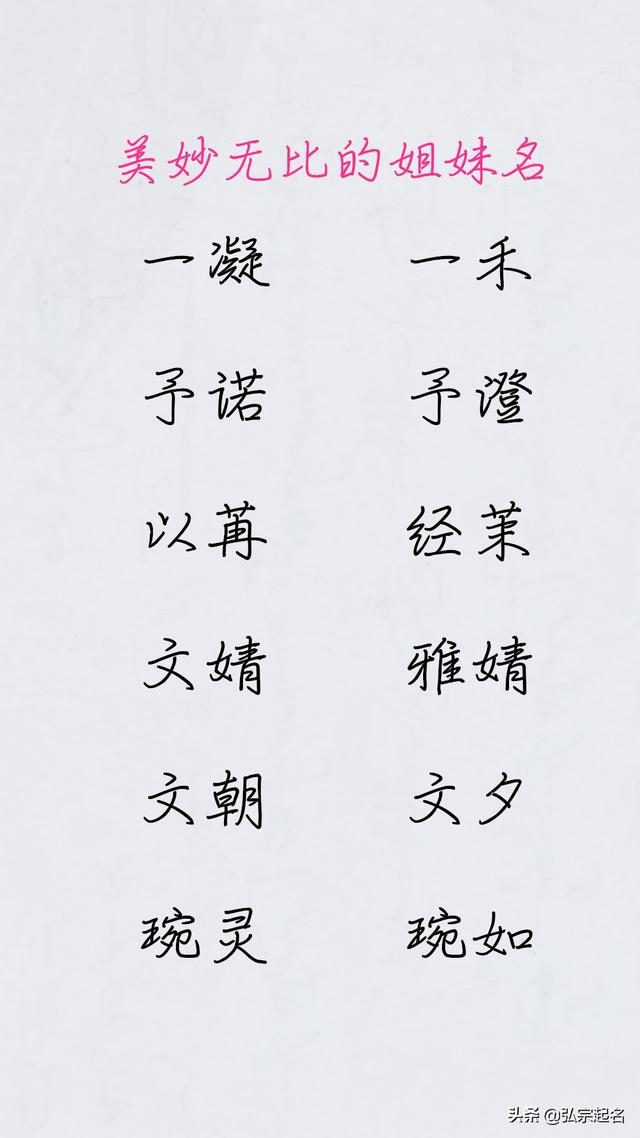 美妙无比的姐妹名
一凝 一禾
予诺 予澄
以苒 经茉
文婧 雅婧
文朝 文夕
琬灵 琬如
头条 @弘宗起名